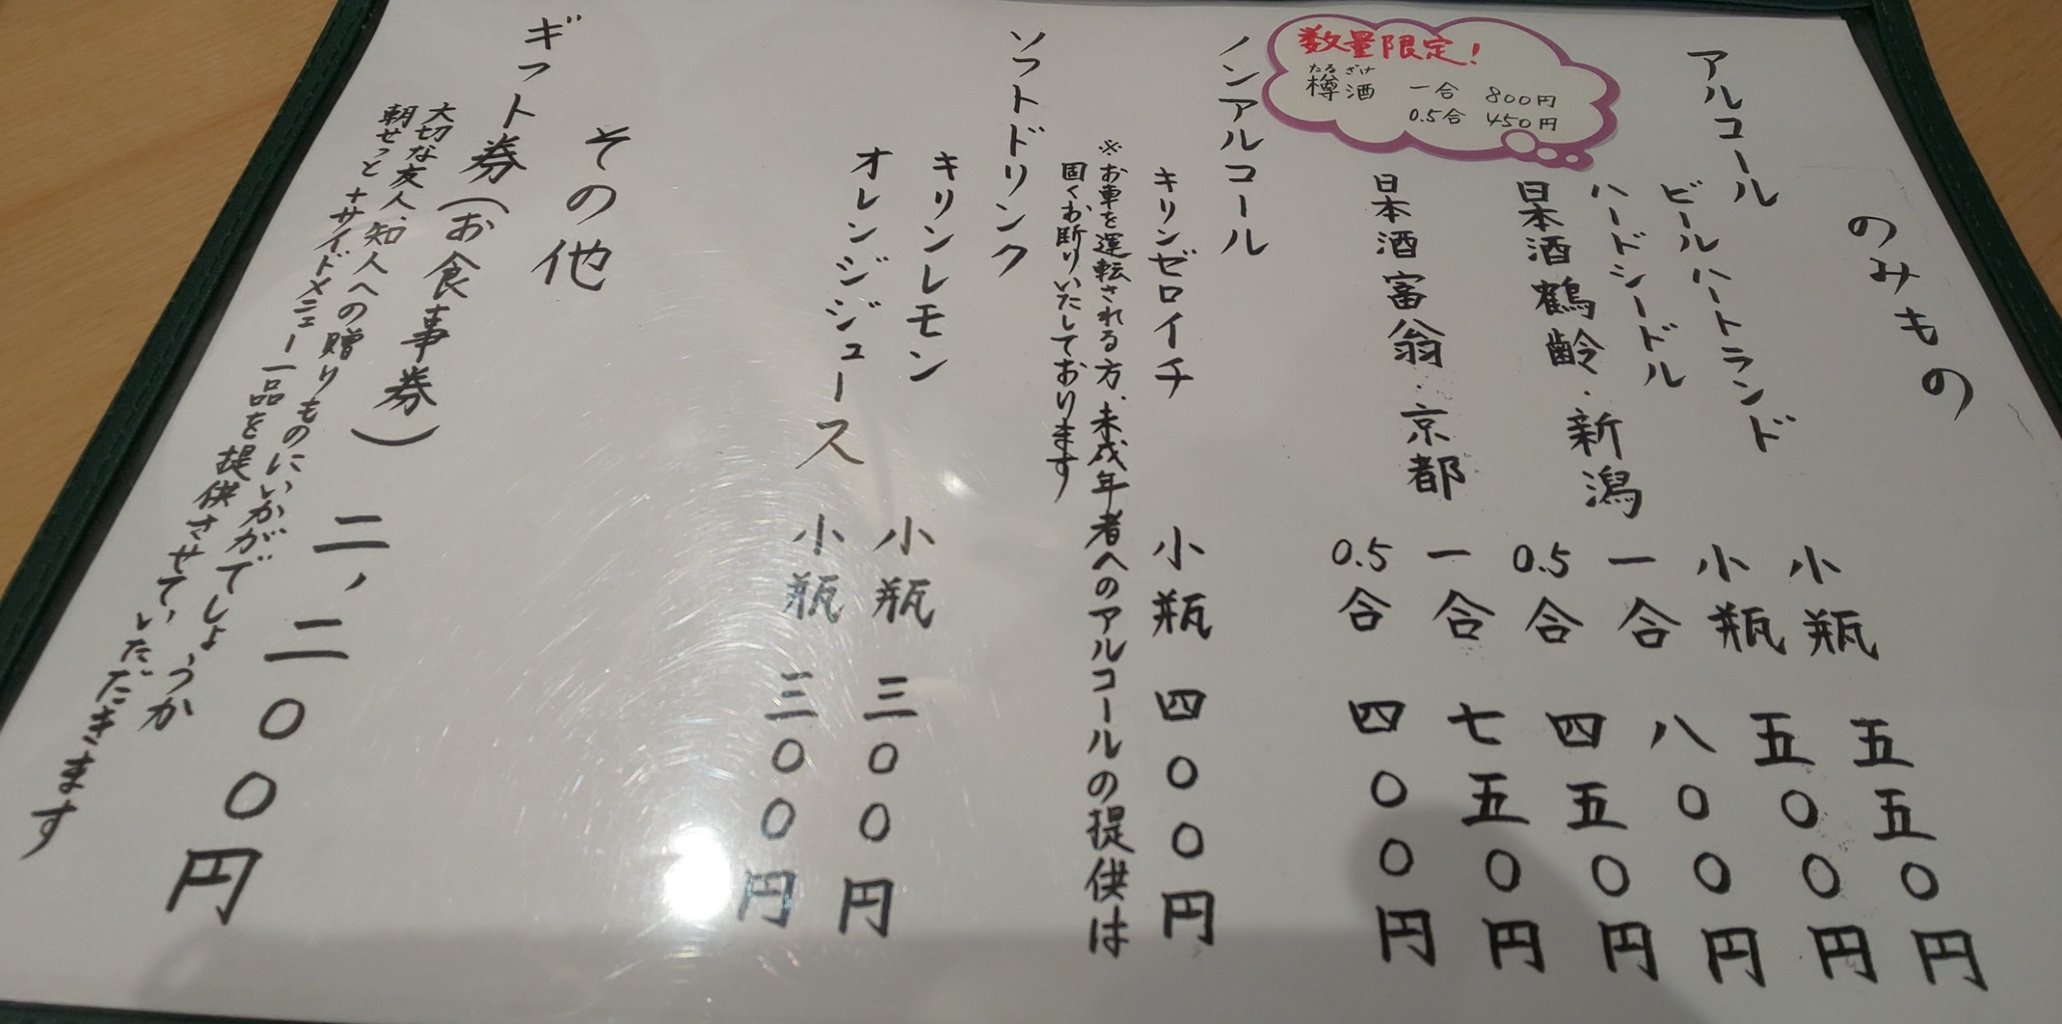 のみもの
アルコール
ビール ハートランド 小瓶 五五〇円
ハードシードル 小瓶 五〇〇円
日本酒 鶴齢・新潟 一合 八〇〇円
0.5合 四五〇円
日本酒 富翁・京都 一合 七五〇円
0.5合 四〇〇円
数量限定!
たるざけ
樽酒 一合 800円
0.5合 450円
ノンアルコール
キリンゼロイチ 小瓶 四〇〇円
※お車を運転される方、未成年者へのアルコールの提供は
固くお断りいたしております
ソフトドリンク
キリンレモン 小瓶 三〇〇円
オレンジジュース 小瓶 三〇〇円
その他
ギフト券(お食事券) 二、二〇〇円
大切な友人、知人への贈りものにいかがでしょうか
朝せっと+サイドメニュー一品を提供させていただきます